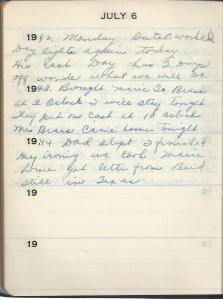 JULY 6
1942. Monday. Dutch worked
Day lights again today
His last Day has 2 Days
off wonder what we will do.
1943. Bought Marie to Brass
at 2 Oclock I will stay tonight
They put on cast at 10 oclock
Mrs Brass Came home tonight
1944 Dad slept I finished
my ironing we took Marie
home got letter from Bud
still in Texas
19
19